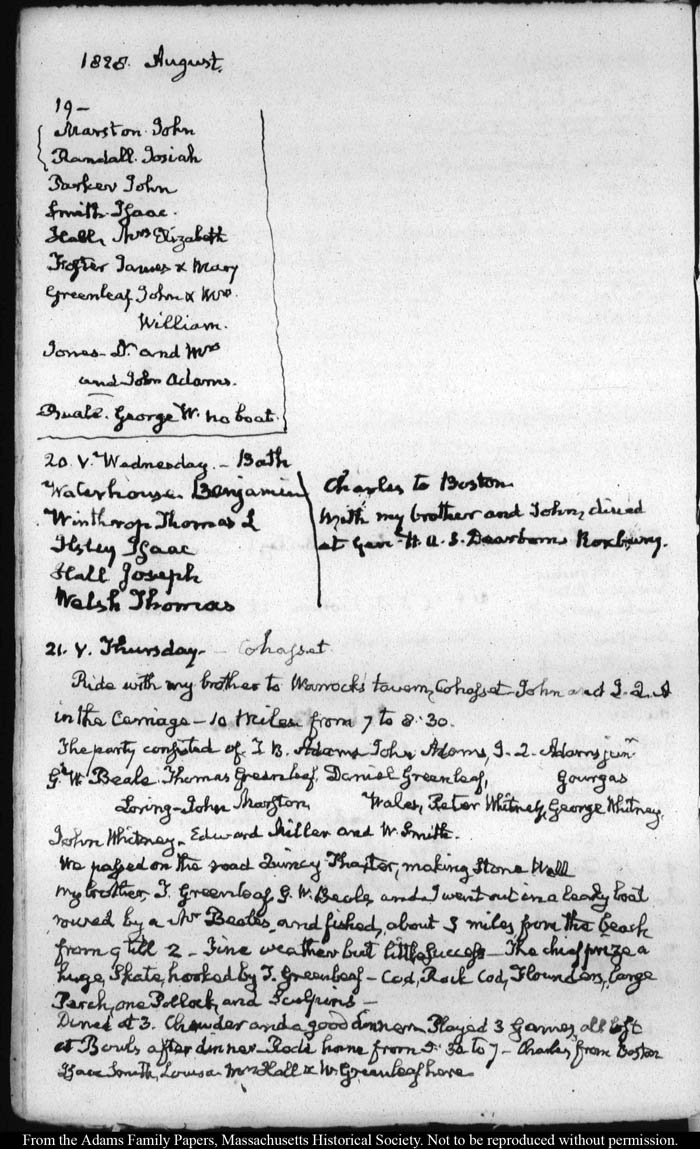 1828. August.
19 -
Marston John
Randall. Josiah
Parker John
Smith. Isaac.
Hall, Mrs. Elizabeth
Foster James & Mary
Greenleaf John & Mrs.
William.
Jones. Dr. and Mrs
and John Adams.
Beale. George W. no boat.
20. V. Wednesday. - Bath
Waterhouse Benjamin
Winthrop Thomas L
Ilsley Isaac
Hall Joseph
Welsh Thomas
Charles to Boston
With my brother and John, dined
at Genl. H. A. S. Dearborns Roxbury.
21. V. Thursday. - Cohasset
Ride with my brother to Warrocks tavern, Cohasset John and J. Q. A
in the Carriage - 10 Miles from 7 to 8.30.
The party consisted of T B. Adams John Adams, J. Q. Adams junr
G. W. Beale. Thomas Greenleaf, Daniel Greenleaf, Gourgas
Loring - John Marston Wales, Peter Whitney, George Whitney,
John Whitney. Edward Miller and W. Smith.
We passed on the road Quincy Thaxter, making Stone Wall
my brother, T. Greenleaf, G. W. Beale, and I went out in a leaky boat
rowed by a Mr Beates, and fished, about 3 miles from the beach
from 9 till 2 - Fine weather but little success - The chief prize a
huge Skate, hooked by T. Greenleaf - Cod, Rock Cod, Flounders, large
Perch, one Pollock, and Sculpins -
Dined at 3. Chowder and a good dinner. Played 3 Games, all lost
at Bowls after dinner. Rode home from 5.30 to 7 - Charles from Boston
Isaac Smith, Louisa Mrs Hall & W. Greenleaf here
From the Adams Family Papers, Massachusetts Historical Society. Not to be reproduced without permission.